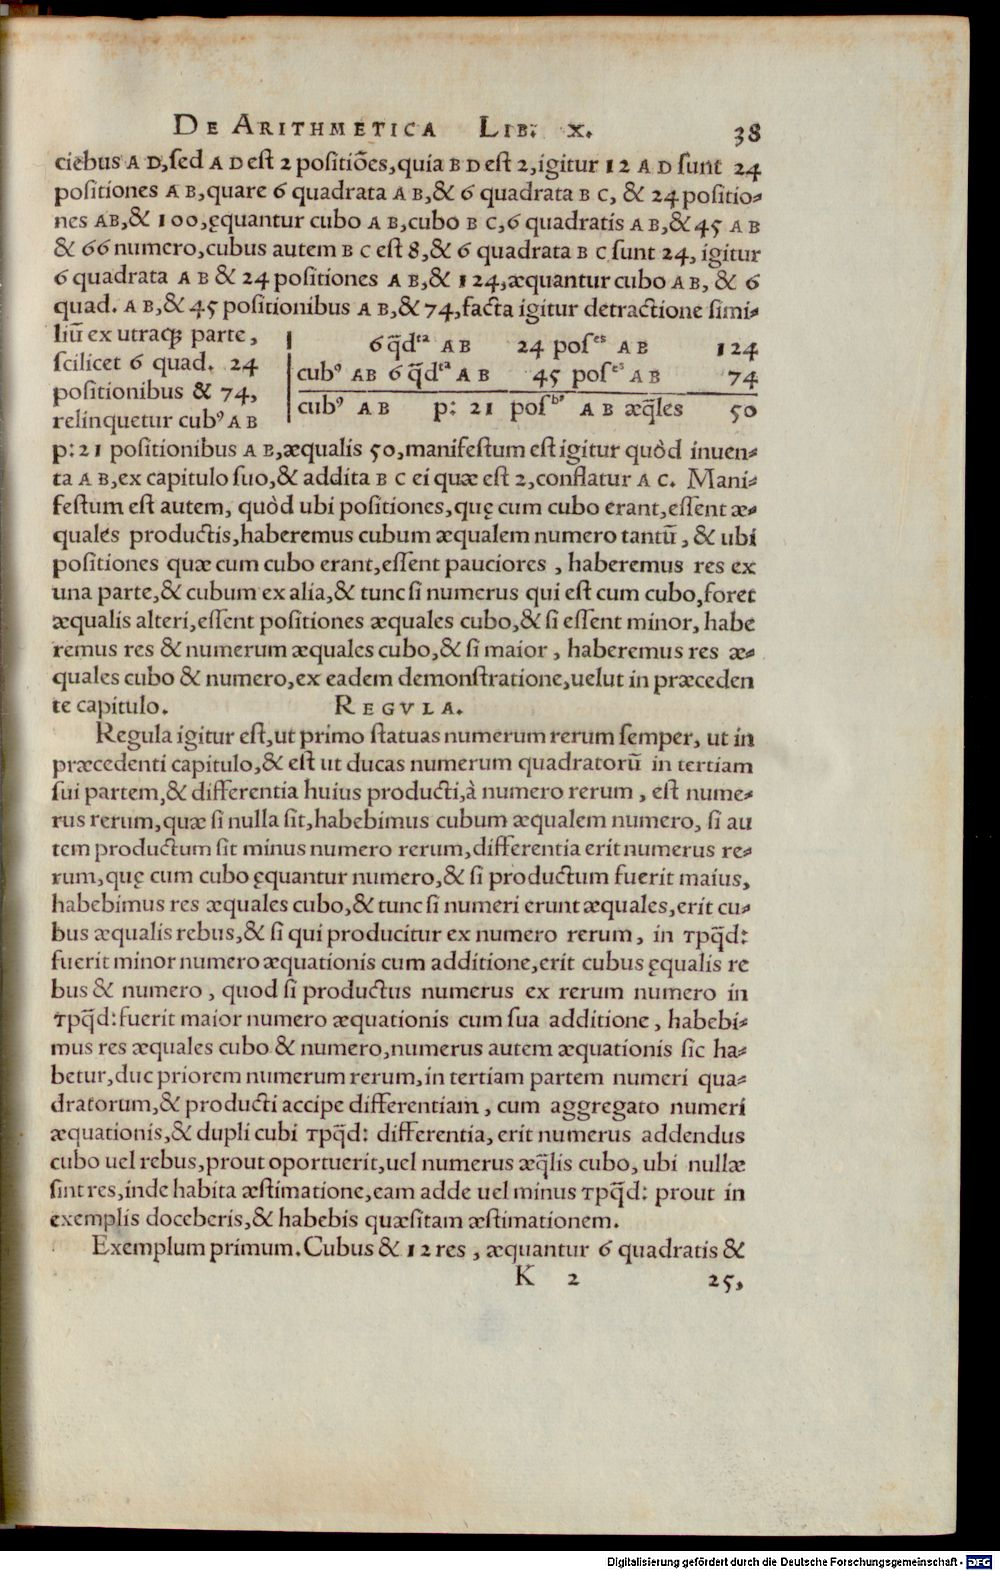 DE ARITHMETICA LIB. X. 38
ciebus A D, sed A D est 2 positiões, quia B D est 2, igitur 12 A D sunt 24
positiones A B, quare 6 quadrata A B, & 6 quadrata B C, & 24 positio⸗
nes AB, & 100, ęquantur cubo A B, cubo B C, 6 quadratis A B, & 45 A B
& 66 numero, cubus autem B C est 8, & 6 quadrata B C sunt 24, igitur
6 quadrata A B & 24 positiones A B, & 124, æquantur cubo A B, & 6
quad. A B, & 45 positionibus A B, & 74, facta igitur detractione simi⸗
liũ ex utraqꝫ parte,
scilicet 6 quad. 24
positionibus & 74,
relinquetur cubꝰ A B
6 q̃dᵗᵃ A B 24 posᵉˢ A B 124
cubꝰ AB 6 q̃dᵗᵃ A B 45 posᵉˢ A B 74
cubꝰ A B p: 21 posᵇꝰ A B æq̃les 50
p: 21 positionibus A B, æqualis 50, manifestum est igitur quòd inuen⸗
ta A B, ex capitulo suo, & addita B C ei quæ est 2, conflatur A C. Mani⸗
festum est autem, quòd ubi positiones, quę cum cubo erant, essent æ⸗
quales productis, haberemus cubum æqualem numero tantũ, & ubi
positiones quæ cum cubo erant, essent pauciores, haberemus res ex
una parte, & cubum ex alia, & tunc si numerus qui est cum cubo, foret
æqualis alteri, essent positiones æquales cubo, & si essent minor, habe
remus res & numerum æquales cubo, & si maior, haberemus res æ⸗
quales cubo & numero, ex eadem demonstratione, uelut in præceden
te capitulo. REGVLA.
Regula igitur est, ut primo statuas numerum rerum semper, ut in
præcedenti capitulo, & est ut ducas numerum quadratorũ in tertiam
sui partem, & differentia huius producti, à numero rerum, est nume⸗
rus rerum, quæ si nulla sit, habebimus cubum æqualem numero, si au
tem productum sit minus numero rerum, differentia erit numerus re⸗
rum, quę cum cubo ęquantur numero, & si productum fuerit maius,
habebimus res æquales cubo, & tunc si numeri erunt æquales, erit cu⸗
bus æqualis rebus, & si qui producitur ex numero rerum, in Tpq̃d:
fuerit minor numero æquationis cum additione, erit cubus ęqualis re
bus & numero, quod si productus numerus ex rerum numero in
Tpq̃d: fuerit maior numero æquationis cum sua additione, habebi⸗
mus res æquales cubo & numero, numerus autem æquationis sic ha⸗
betur, duc priorem numerum rerum, in tertiam partem numeri qua⸗
dratorum, & producti accipe differentiam, cum aggregato numeri
æquationis, & dupli cubi Tpq̃d: differentia, erit numerus addendus
cubo uel rebus, prout oportuerit, uel numerus æq̃lis cubo, ubi nullæ
sint res, inde habita æstimatione, eam adde uel minus Tpq̃d: prout in
exemplis doceberis, & habebis quæsitam æstimationem.
Exemplum primum. Cubus & 12 res, æquantur 6 quadratis &
K 2 25,
Digitalisierung gefördert durch die Deutsche Forschungsgemeinschaft - DFG